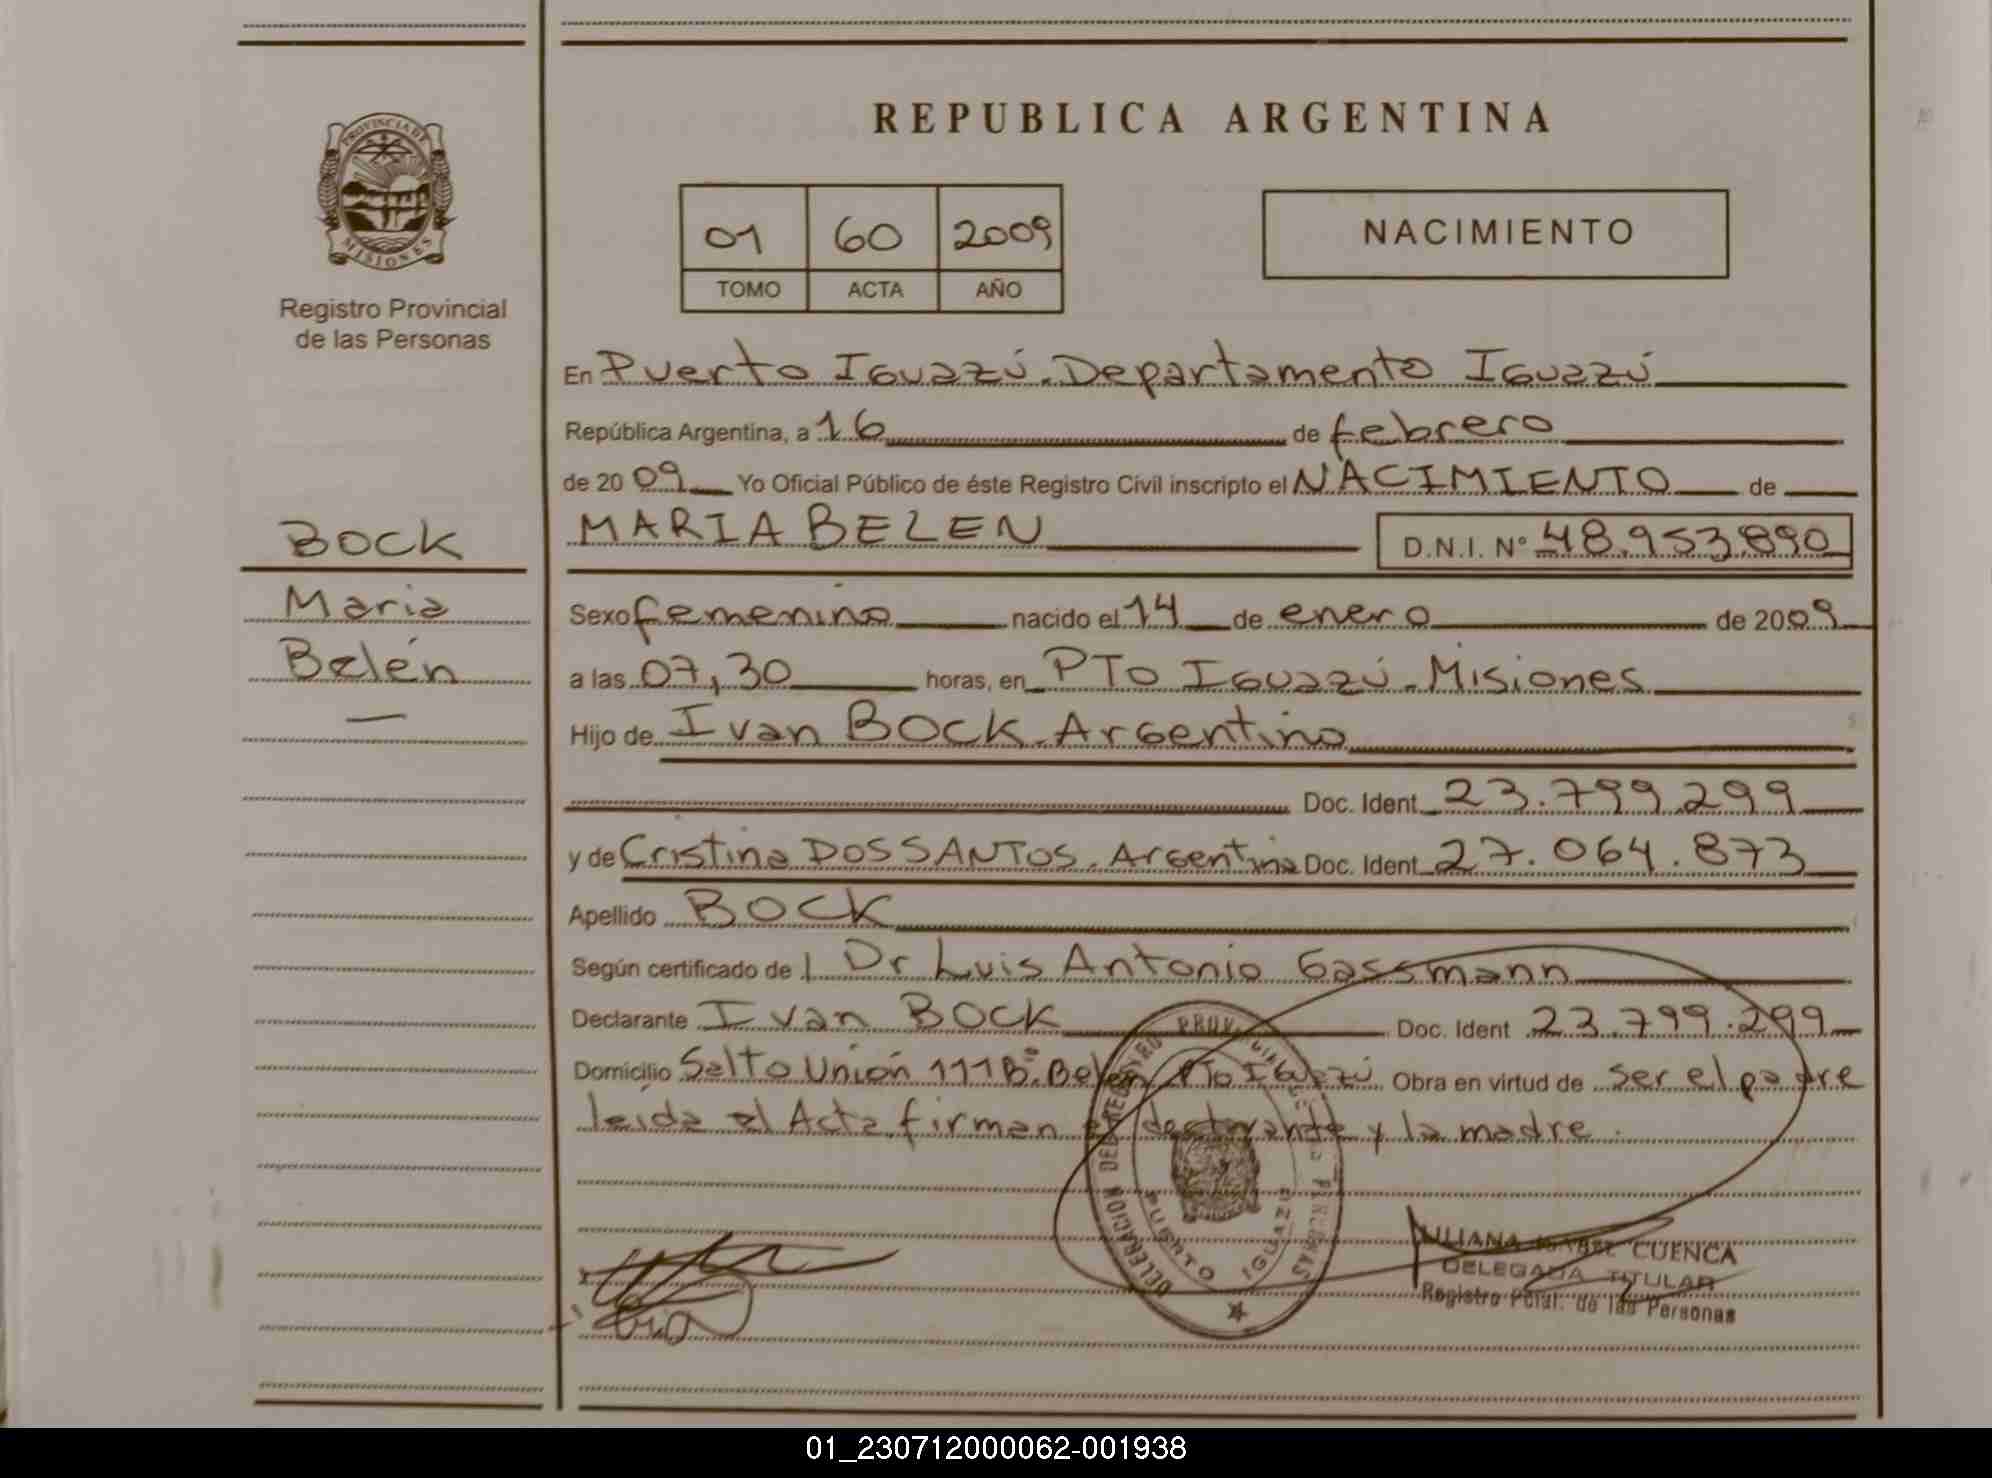 REPUBLICA ARGENTINA
PROVINCIA DE
MISIONES
Registro Provincial
de las Personas
01 60 2009
TOMO ACTA AÑO
NACIMIENTO
BOCK
Maria
Belén
En Puerto Iguazú. Departamento Iguazú
República Argentina, a 16 de febrero
de 2009 Yo Oficial Público de éste Registro Civil inscripto el NACIMIENTO de
MARIA BELEN D.N.I. N° 48.953.890
Sexo femenino nacido el 14 de enero de 2009
a las 07,30 horas, en PTo Iguazú. Misiones
Hijo de Ivan BOCK. Argentino
Doc. Ident 23.799.299
y de Cristina DOS SANTOS. Argentina Doc. Ident 27.064.873
Apellido BOCK
Según certificado de Dr Luis Antonio Gassmann
Declarante Ivan BOCK Doc. Ident 23.799.299
Domicilio Salto Unión 111 B° Belén PTo Iguazú Obra en virtud de ser el padre
leida el Acta firman el declarante y la madre.
DELEGACION DEL REGISTRO PROV. DE LAS PERSONAS
PUERTO IGUAZU
JULIANA ISABEL CUENCA
DELEGADA TITULAR
Registro Pcial. de las Personas
01_230712000062-001938